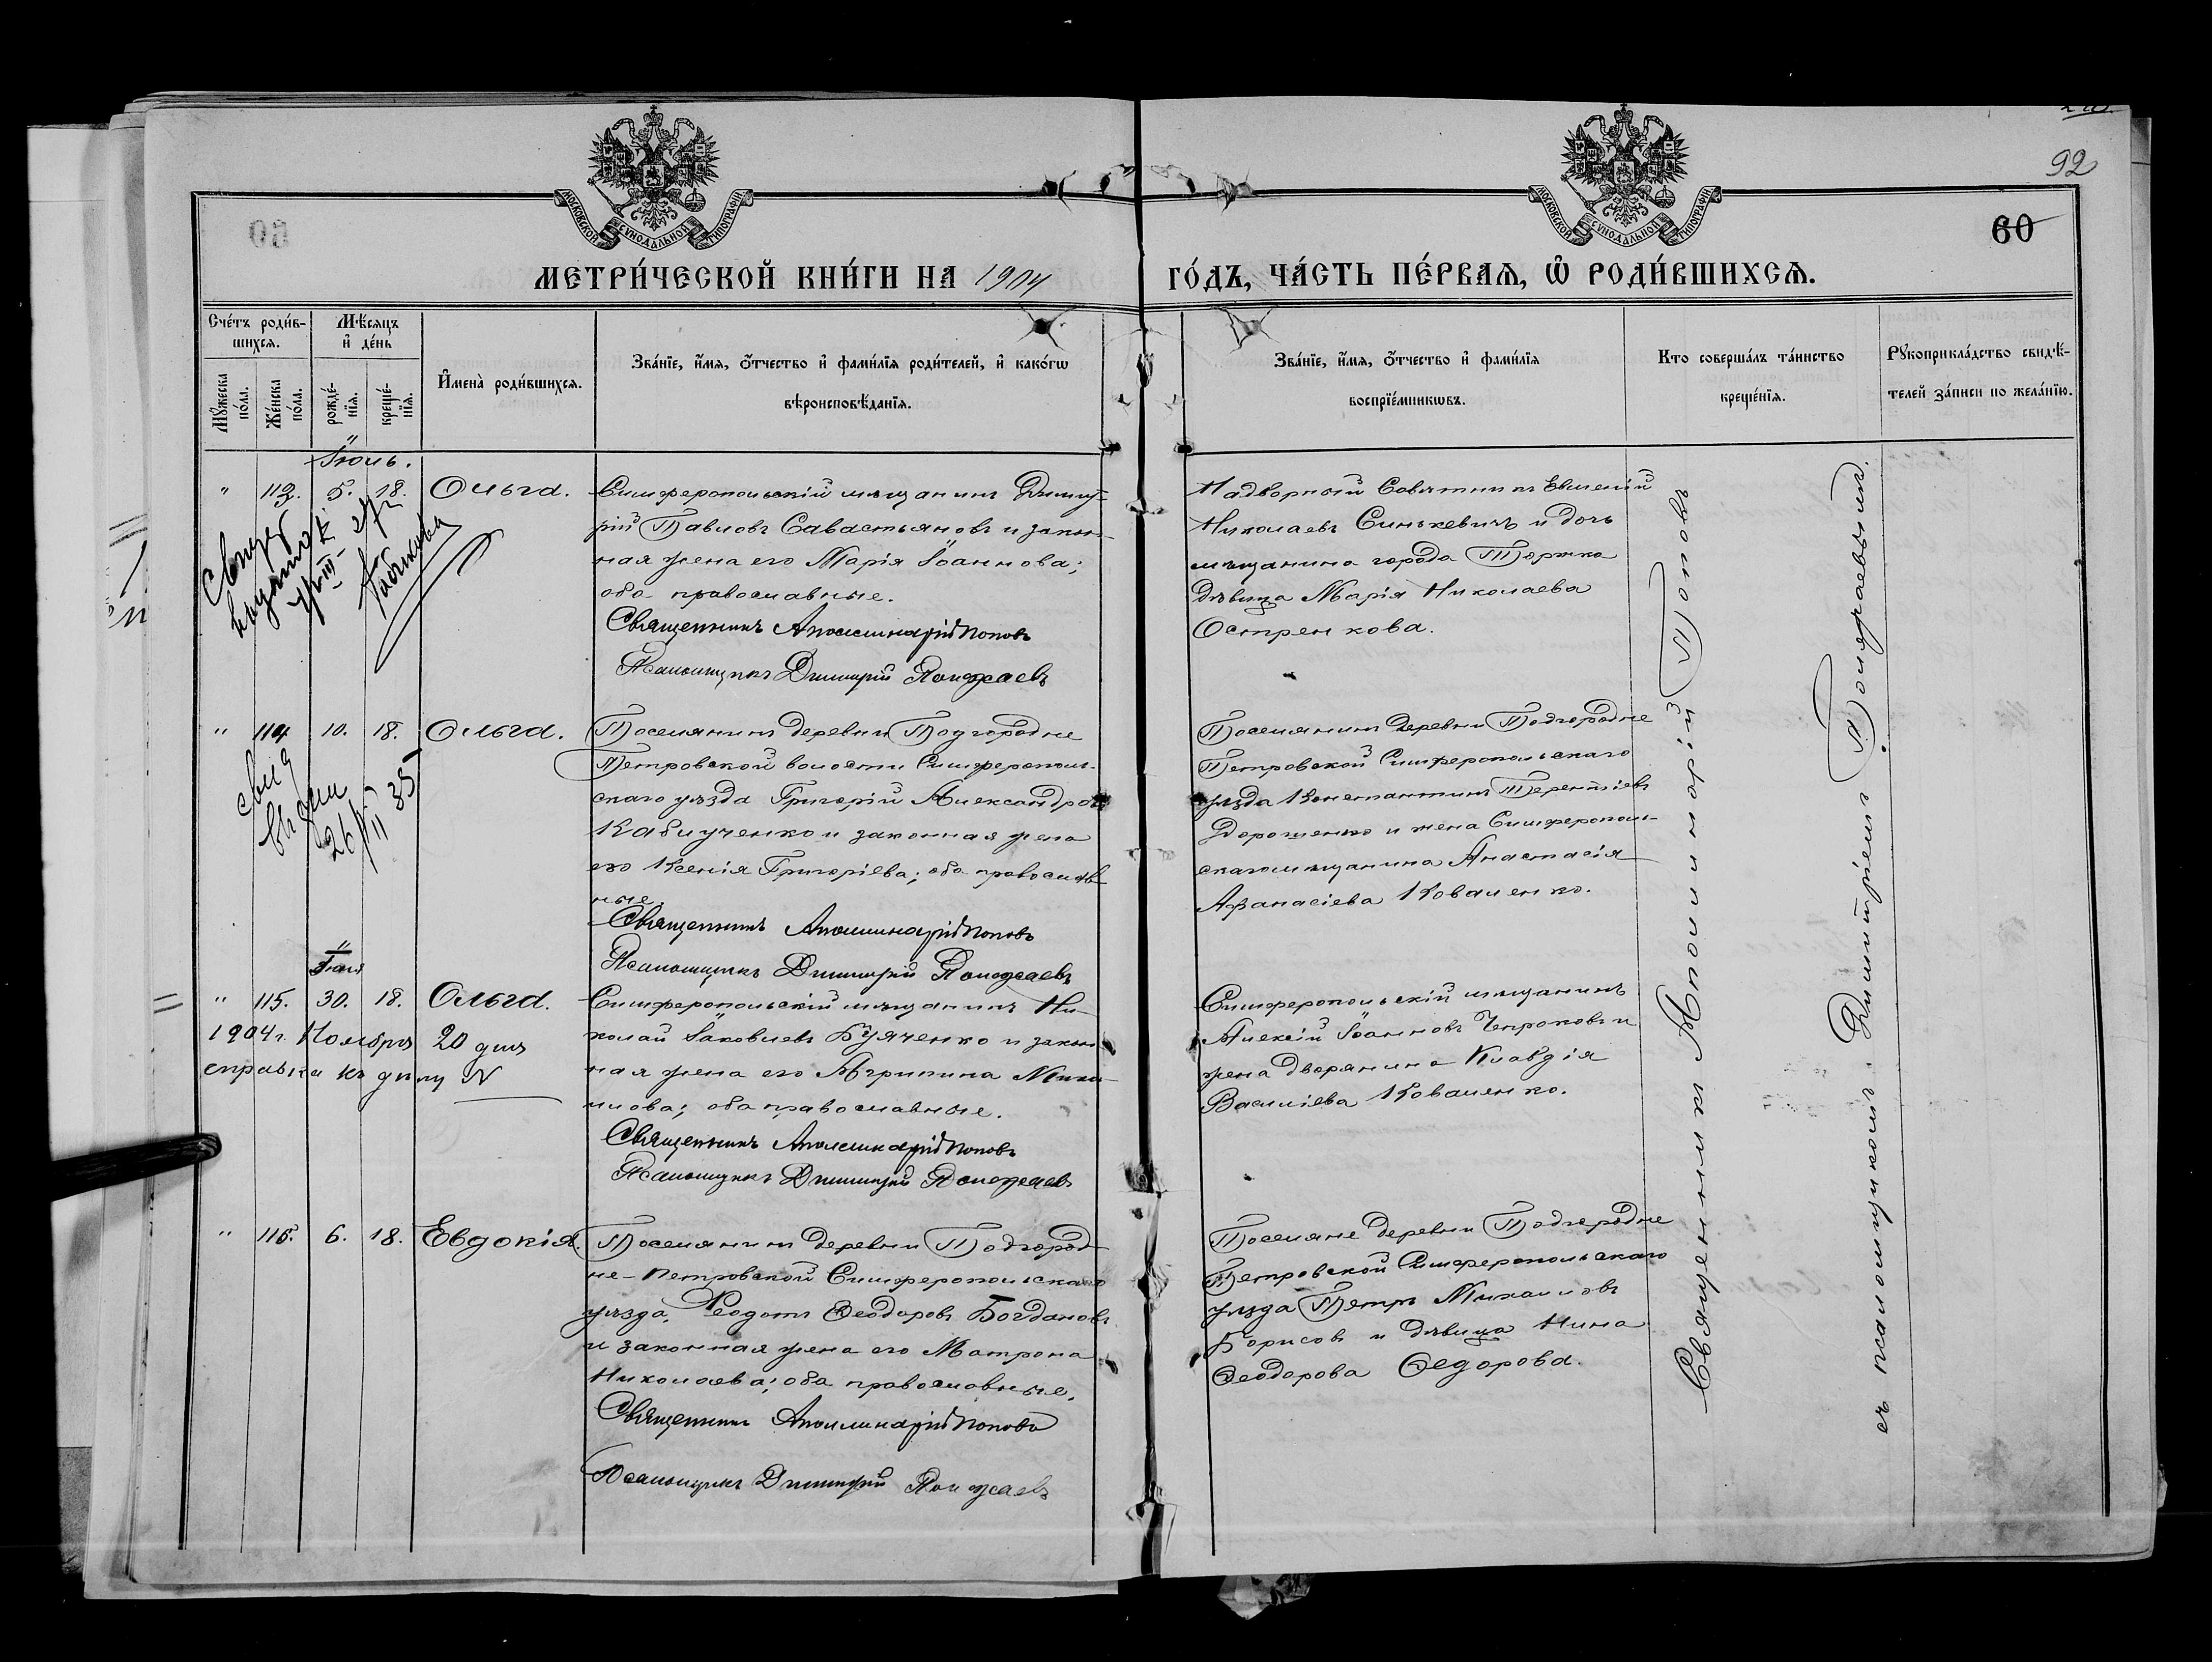 92
60
МОСКОВСКОЙ СѴНОДАЛЬНОЙ ТИПОГРАФІИ
МОСКОВСКОЙ СѴНОДАЛЬНОЙ ТИПОГРАФІИ
МЕТРИ́ЧЕСКОЙ КНИ́ГИ НА 1904 ГО́ДЪ, ЧА́СТЬ ПЕ́РВАѦ, Ѡ РОДИ́ВШИХСѦ.
Сче́тъ роди́в-
шихсѧ.
Мꙋ́жеска по́ла.
Же́нска по́ла.
Мѣ́сѧцъ
и҆ де́нь
рожде́-
нїѧ.
креще́-
нїѧ.
И҆мена̀ роди́вшихсѧ.
Зва́нїе, и҆́мѧ, ѻ҆́тчество и҆ фами́лїѧ роди́телей, и҆ како́гѡ
вѣроисповѣ́данїѧ.
Зва́нїе, и҆́мѧ, ѻ҆́тчество и҆ фами́лїѧ
воспрїе́мникѡвъ.
Кто соверша́лъ та́инство
креще́нїѧ.
Рꙋкоприкла́дство свидѣ́-
телей за́писи по жела́нїю.
Іюль.
" 112. 5. 18. Ольга.
Симферопольскій мѣщанинъ Димит-
рій Павловъ Савастьяновъ и закон-
ная жена его Марія Іоаннова;
оба православные.
Священникъ Аполлинарій Поповъ
Псаломщикъ Димитрій Полежаевъ
Надворный Совѣтникъ Евменій
Николаевъ Синькевичъ и дочь
мѣщанина города Торжка
дѣвица Марія Николаева
Остренкова.
" 114 10. 18. Ольга.
свид
выдан
26/II 35
Поселянинъ деревни Подгородне
Петровской волости Симферополь-
скаго уѣзда Григорій Александровъ
Кабиученко и законная жена
его Ксенія Григоріева; оба православ-
ные.
Священникъ Аполлинарій Поповъ
Псаломщикъ Димитрій Полежаевъ
Поселянинъ деревни Подгородне
Петровской Симферопольскаго
уѣзда Константинъ Терентіевъ
Дорошенко и жена Симферополь-
скаго мѣщанина Анастасія
Афанасіева Коваленко.
" 115. 30. 18. Ольга.
1904 г. Ноября 20 дня
справка къ дѣлу N
Симферопольскій мѣщанинъ Ни-
колай Іаковлевъ Буяченко и закон-
ная жена его Агрипина Михаи-
лова; оба православные.
Священникъ Аполлинарій Поповъ
Псаломщикъ Димитрій Полежаевъ
Симферопольскій мѣщанинъ
Алексій Іоанновъ Чепроковъ и
жена дворянина Клавдія
Василіева Коваленко.
" 116. 6. 18. Евдокія.
Поселянинъ деревни Подгород-
не-Петровской Симферопольскаго
уѣзда, Ѳеодотъ Ѳеодоровъ Богдановъ
и законная жена его Матрона
Николаева; оба православные.
Священникъ Аполлинарій Поповъ
Псаломщикъ Димитрій Полежаевъ
Поселяне деревни Подгородне
Петровской Симферопольскаго
уѣзда Петръ Михаиловъ
Борисовъ и дѣвица Нина
Ѳеодорова Ѳедорова.
Священникъ Аполлинарій Поповъ
съ псаломщикомъ Димитріемъ Полежаевымъ.